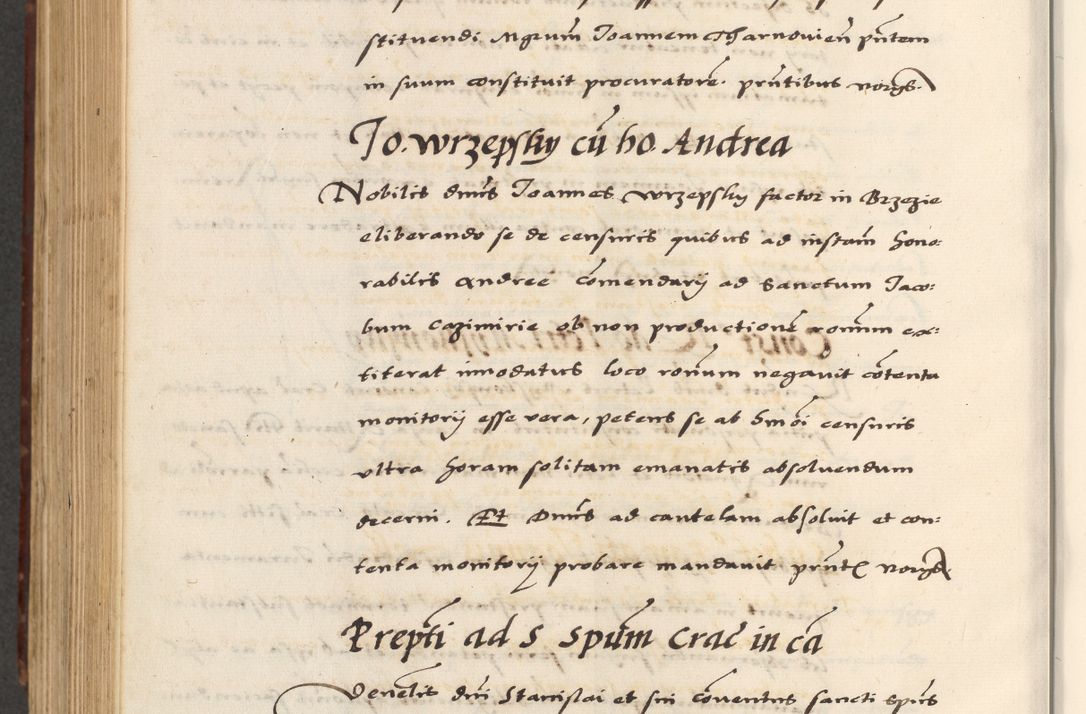 stituendi. Mgrum Joannem Tharnovien pntem
in suum constituit procuratore. pntibus norgs.
Jo. Wrzepsky cu ho. Andrea
Nobilis dnus Joannes Wrzepsky factor in Brzezie
eliberando se de censuris quibus ad instam hono:
rabilis Andree Comendarij ad Sanctum Jaco:
bum Cazimirie ob non productione ronum ex:
titerat innodatus loco ronum negavit cotenta
monitorij esse vera, petens se ab hmoi censuris
ultra horam solitam emanatis absoluendum
decerni. Et Dnus ad cautelam absoluit et con:
tenta monitorij probare mandavit pnt norgs
Prepti ad S Spum Crac in ca
Venelis dni Stanislai et sui Conventus sancti spus